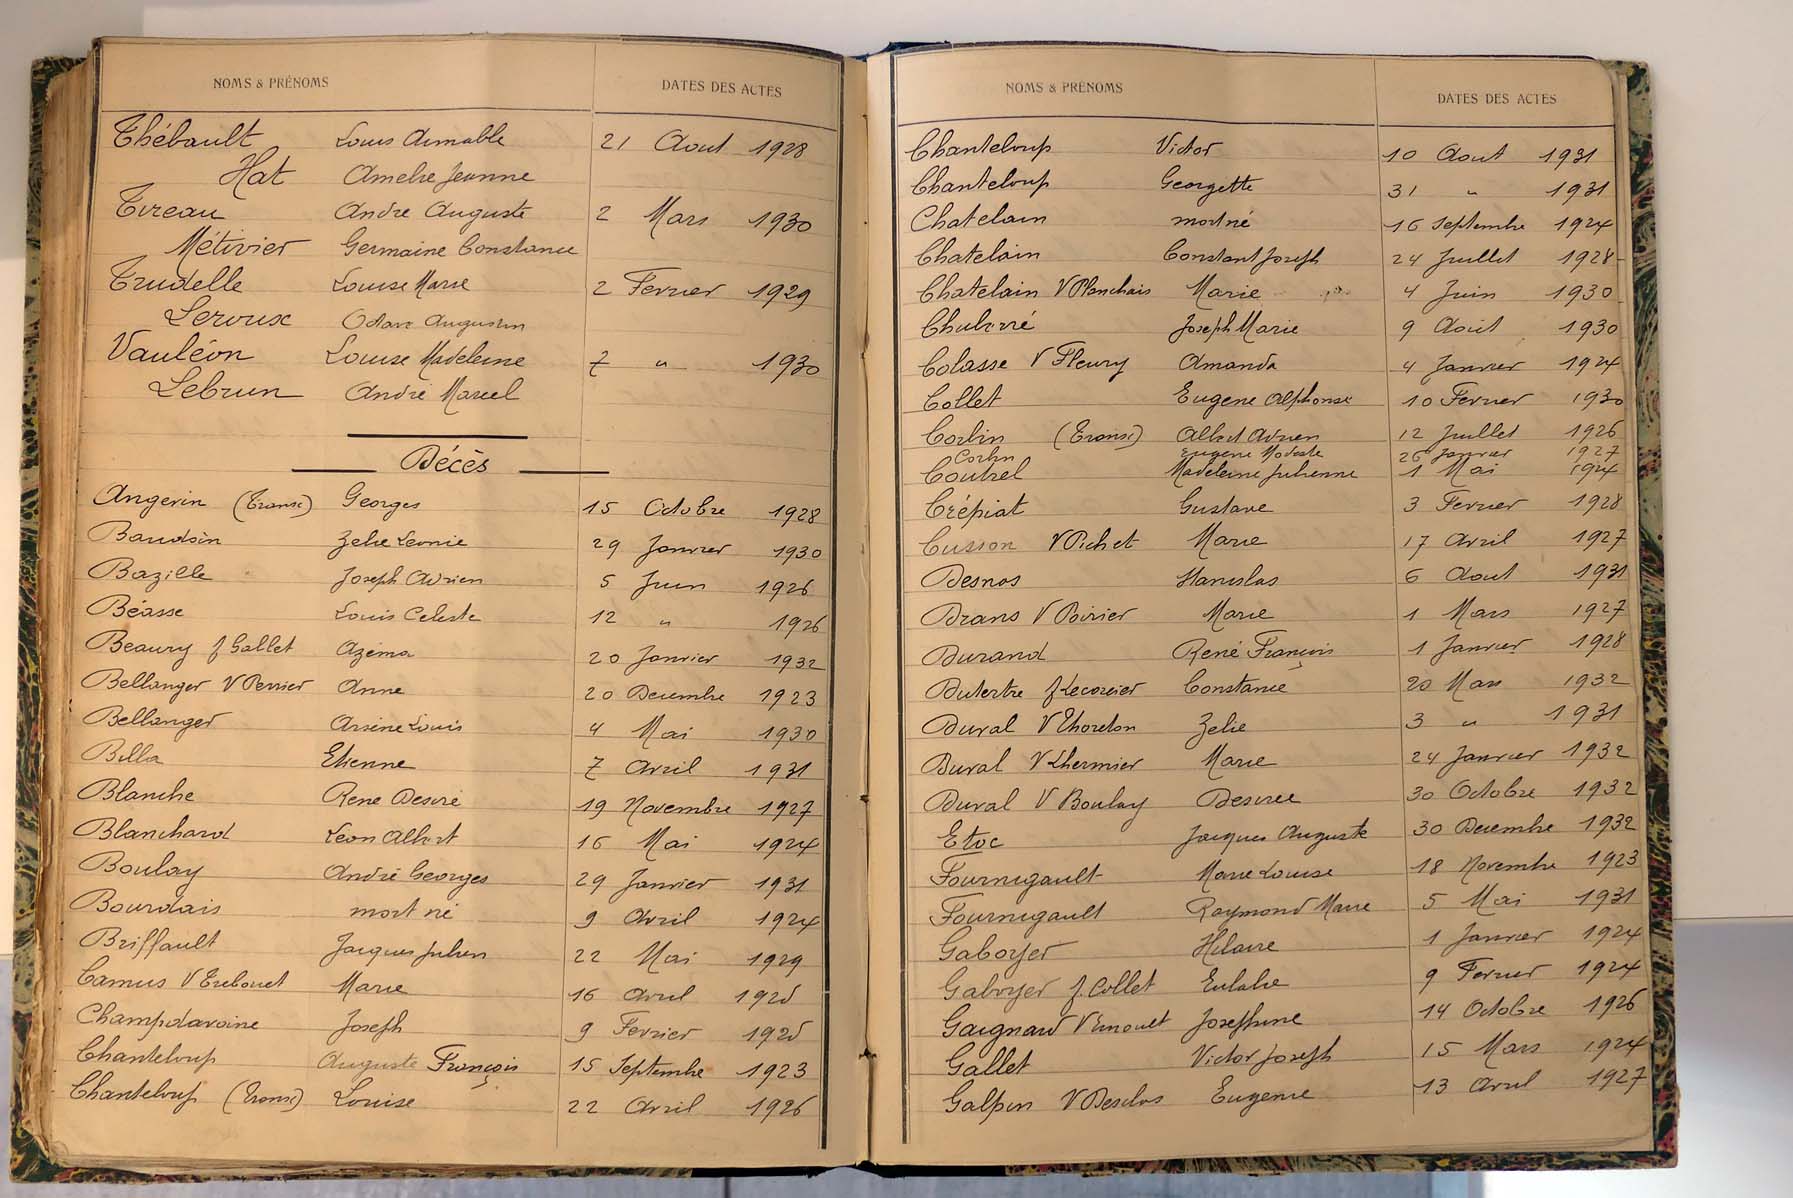 NOMS & PRÉNOMS DATES DES ACTES
Thébault Louis Aimable 21 Aout 1928
Hat Amelie Jeanne
Tireau André Auguste 2 Mars 1930
Métivier Germaine Constance
Trudelle Louise Marie 2 Fevrier 1929
Leroux Octave Augustin
Vauléon Louise Madeleine 7 " 1930
Lebrun André Marcel
Décès
Angerin (Transc) Georges 15 Octobre 1928
Baudoin Zelie Leonie 29 Janvier 1930
Bazille Joseph Adrien 5 Juin 1926
Béasse Louis Celeste 12 " 1926
Beaury f Gallet Azema 20 Janvier 1932
Bellanger V Perrier Anne 20 Decembre 1923
Bellanger Arsène Louis 4 Mai 1930
Billa Etienne 7 Avril 1931
Blanche René Desiré 19 Novembre 1927
Blanchard Léon Albert 16 Mai 1924
Boulay André Georges 29 Janvier 1931
Bourdais mort né 9 Avril 1924
Briffault Jacques Julien 22 Mai 1929
Camus V Trebouet Marie 16 Avril 1925
Champdavoine Joseph 9 Fevrier 1925
Chanteloup Auguste François 15 Septembre 1923
Chanteloup (Transc) Louise 22 Avril 1926
NOMS & PRÉNOMS DATES DES ACTES
Chanteloup Victor 10 Aout 1931
Chanteloup Georgette 31 " 1931
Chatelain mortné 16 Septembre 1924
Chatelain Constant Joseph 24 Juillet 1928
Chatelain V Planchais Marie 4 Juin 1930
Chuberré Joseph Marie 9 Août 1930
Colasse V Fleury Amanda 4 Janvier 1924
Collet Eugene Alphonse 10 Fevrier 1930
Corbin (Transc) Albert Adrien 12 Juillet 1926
Corbin Eugene Modeste 26 Janvier 1927
Coutrel Madeleine Julienne 1 Mai 1924
Crépiat Gustave 3 Fevrier 1928
Cusson V Pichet Marie 17 Avril 1927
Desnos Stanislas 6 Aout 1931
Drans V Poirier Marie 1 Mars 1927
Durand René François 1 Janvier 1928
Dutertre f Lecorvier Constance 20 Mars 1932
Duval V Thoreton Zelie 3 " 1931
Duval V Lhermier Marie 24 Janvier 1932
Duval V Boulay Desiree 30 Octobre 1932
Etoc Jacques Auguste 30 Decembre 1932
Fournigault Marie Louise 18 Novembre 1923
Fournigault Raymond Marie 5 Mai 1931
Gaboyer Hilaire 1 Janvier 1924
Gaboyer f. Collet Eulalie 9 Fevrier 1924
Gaignard Josephine 14 Octobre 1926
Gallet Victor Joseph 15 Mars 1924
Galpin V Desclos Eugenie 13 Avril 1927